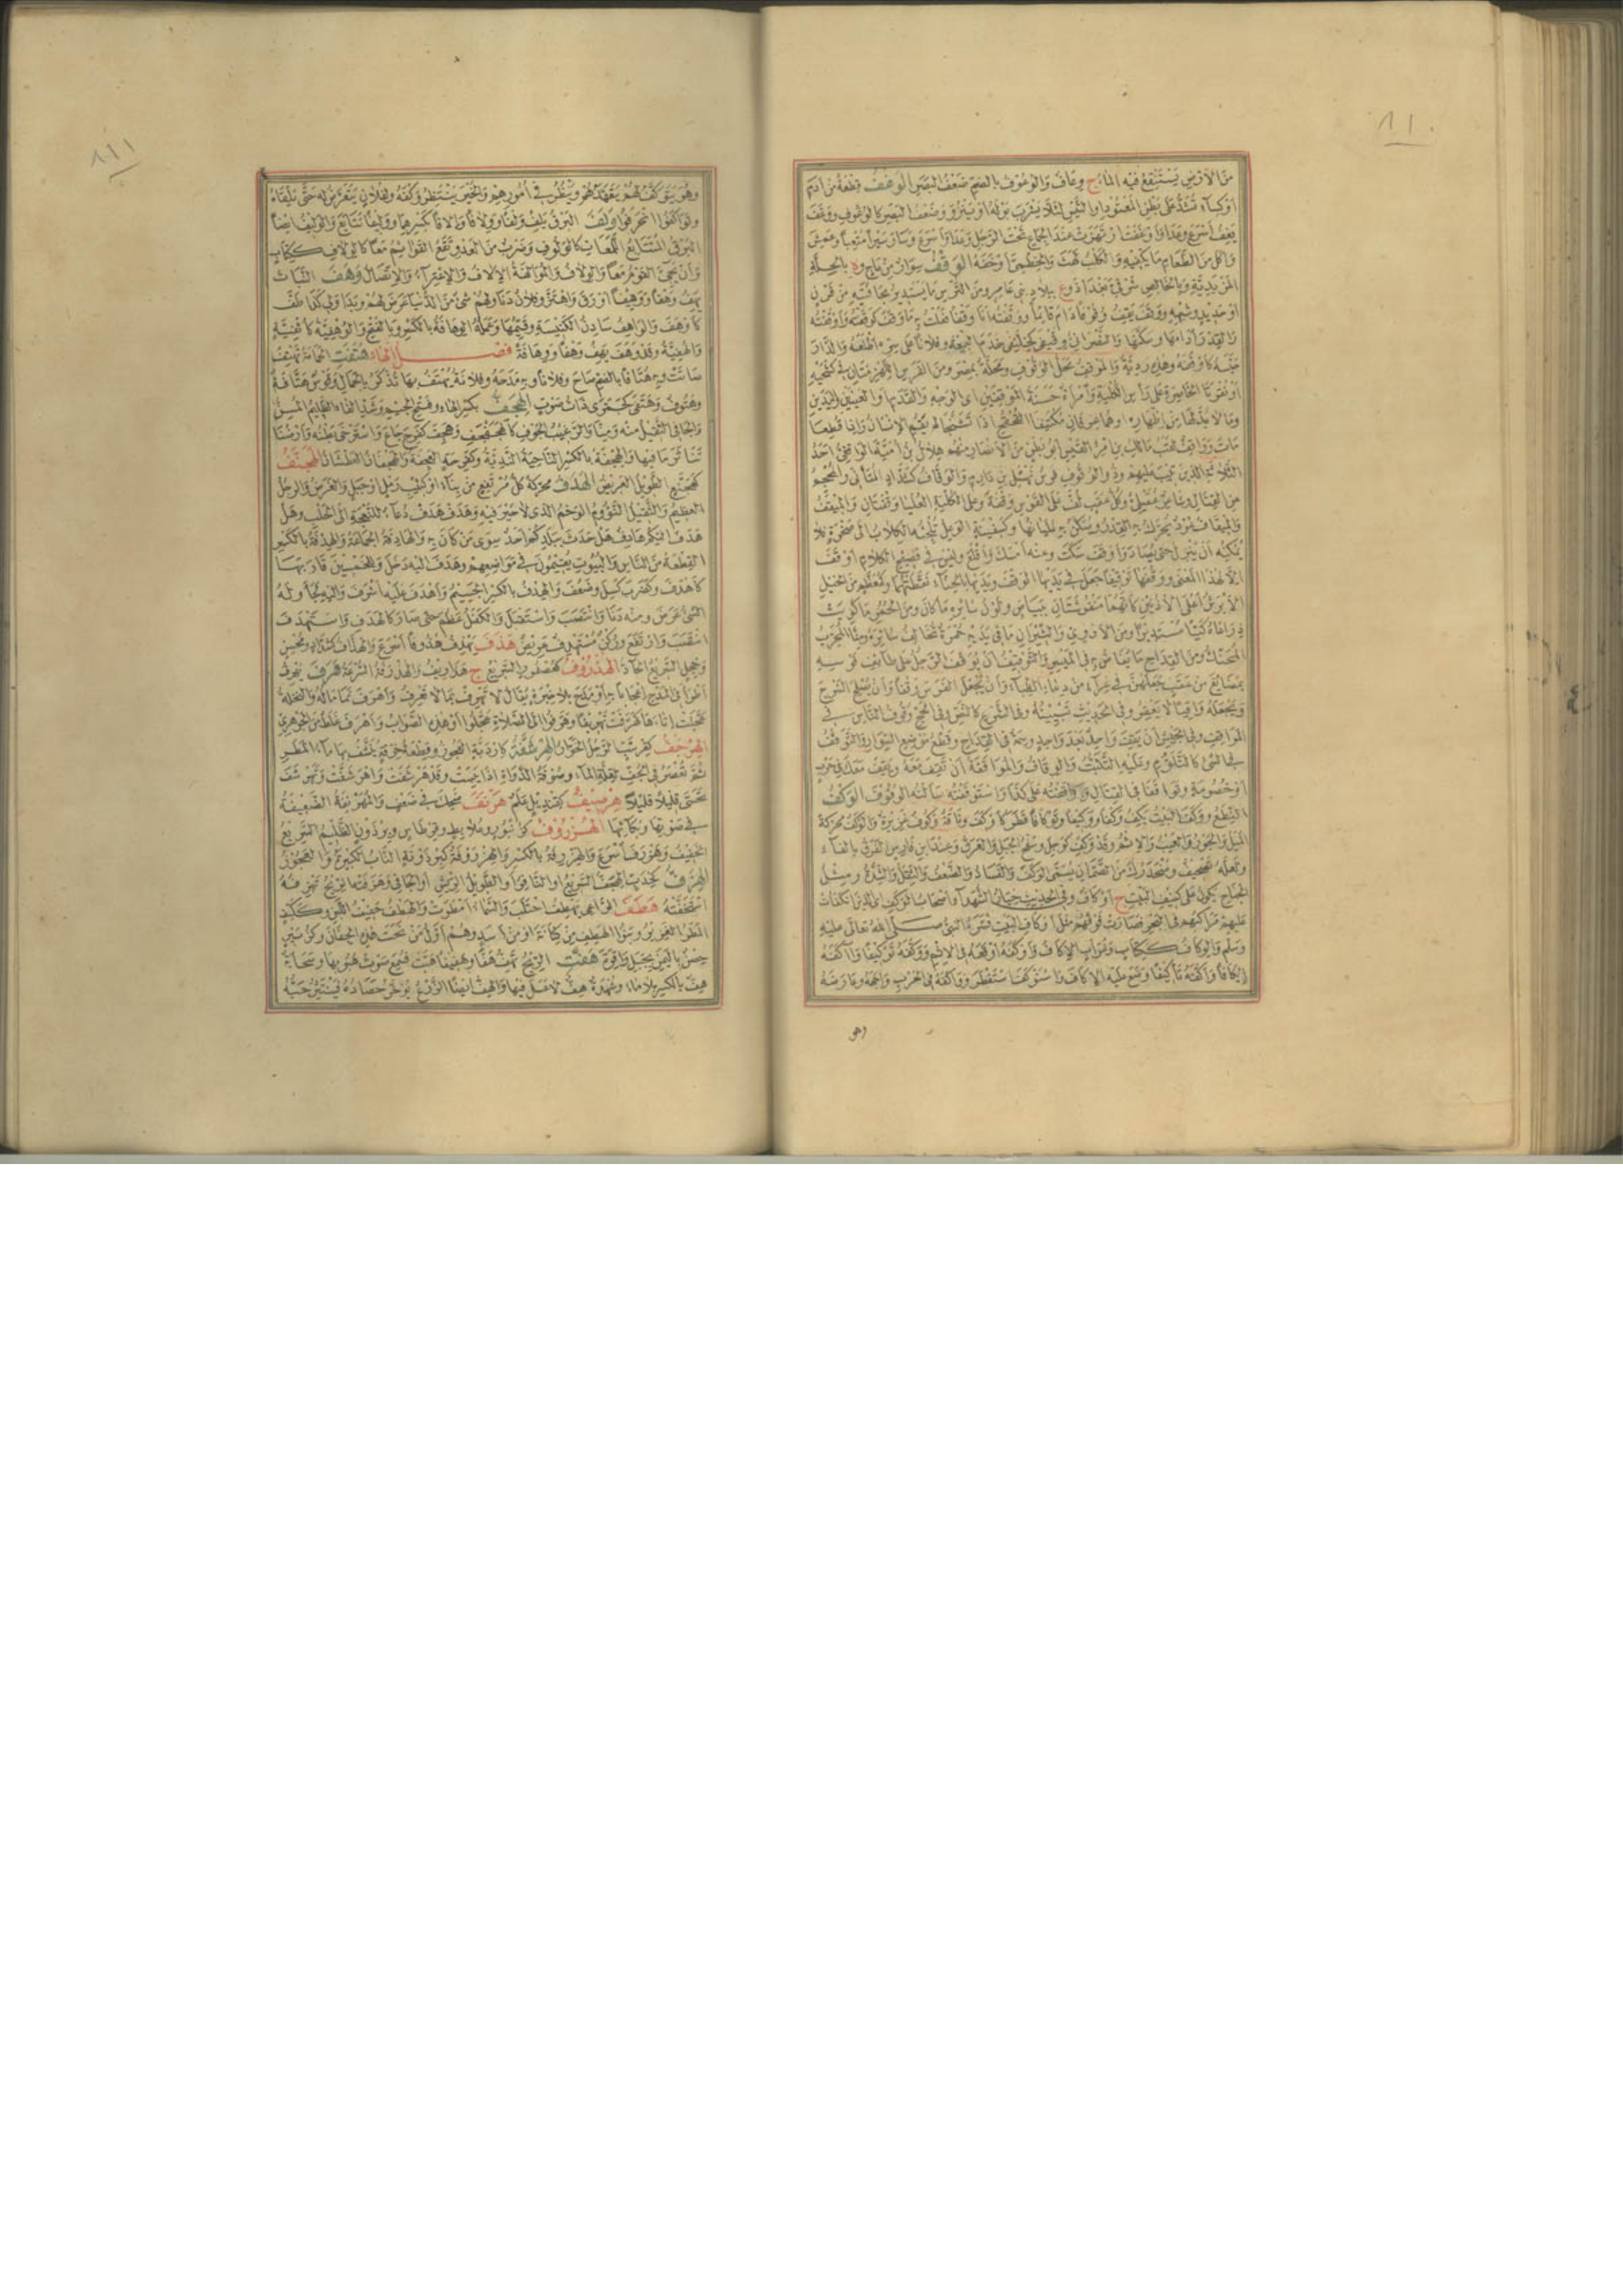 ٨١٠
من الارض يستنقع فيه الماء ج وعاف والوعوف بالضم ضعف البصر الوغف قطعة من ادم
او كساء تشد على بطن العتود او التيس لئلا يشرب بوله او ينزو وضعف البصر كالوغوف ووغف
يغف اسرع وعدا واوغفت ارتهزت عند الجماع تحت الرجل وعدا واسرع وسار سيرا متعبا وعمش
واكل من الطعام ما يكفيه والكلب لهث والخطمي اوخفه الوقف سوار من عاج و
او حديد وشبهه ووقف يقف وقوفا دام قائما ووقفته انا وقفا فعلت به ما وقف كوقفته واوقفته
والقدر ادامها وسكنها والنصراني وقيفى كخليفى خدم البيعة وفلانا على ذنبه اطلعه والدار
حبسه كاوقفه وهذه ردية والموقف محل الوقوف ومحلة بمصر ومن الفرس الهزمتان في كشحيه
او نقرتا الخاصرة على راس الكلية وامراة حسنة الموقفين اي الوجه والقدم او العينين واليدين
وما لا بد لها من اظهاره
مات وواقف لقب مالك بن امرئ القيس ابو بطن من الانصار منهم هلال بن امية الواقفي احد
الثلاثة الذين تيب عليهم وذو الوقوف فرس نهشل بن دارم والوقاف كشداد المتاني والمحجم
عن القتال وشاعر عقيلي وكل عقب لف على القوس وقفة وعلى الكلية العليا وقفتان والميقف
والميقاف عود يحرك به القدر ويسكن به غليانها وكسفينة الوعل تلجئه الكلاب الى صخرة فلا
يمكنه ان ينزل حتى يصاد واوقف سكت وعنه امسك واقلع وليس في فصيح الكلام اوقف
الا لهذا المعنى ووقفها توقيفا جعل في يديها الوقف ويديها بالحناء نقطتها وكمعظم من الخيل
الابرش اعلى الاذنين كانهما منقوشتان ببياض ولون سائره ما كان ومن الحمر ما كويت
ذراعاه كيا مستديرا ومن الاروي والثيران ما في يديه حمرة تخالف سائره ومنا المجرب
المحنك ومن القداح ما يفاض به في الميسر والتوقيف ان يوقف الرجل على طائف قوسه
بمضائغ من عقب جعلهن في غراء من دماء الظباء وان يجعل للفرس وقفا وان يصلح السرج
ويجعله واقيا لا يعقر وفي الحديث تبيينه وفي الشرع كالنص وفي الحج وقوف الناس في
المواقف وفي الجيش ان يقف واحد بعد واحد وسمة في القداح وقطع موضع السوار والتوقف
في الشئ كالتلوم وعليه التثبت والوقاف والمواقفة ان تقف معه ويقف معك في حرب
او خصومة وتواقفا في القتال وواقفته على كذا واستوقفته سالته الوقوف الوكف
النطع ووكف البيت يكف وكفا ووكيفا وتوكافا قطر كاوكف وناقة وكوف غزيرة والوكف محركة
الميل والجور والعيب والاثم وقد وكف كوجل وسفح الجبل والعرق وعند ابن فارس الفرق بالفاء
ولعله تصحيف ومنحدرك من الصمان يسمى الوكف والفساد والضعف والثقل والشدة ومثل
الجناح يكون على كنيف البيت ج اوكاف وفي الحديث خيار الشهداء اصحاب الوكف اي الذين انكفات
عليهم مراكبهم في البحر فصارت فوقهم مثل اوكاف البيت فسره النبي صلى الله تعالى عليه
وسلم والوكاف ككتاب وغراب الاكاف واوكفه اوقعه في الاثم ووكفه توكيفا وآكفه
ايكافا واكفه تأكيفا وضع عليه الاكاف واستوكف استقطر وواكفه في الحرب واجهه وعارضه
وهو
٨١١
وهو يتوكف لهم يتعهدهم وينظر في امورهم والخبر ينتظر وكفه ولفلان يتعرض له حتى يلقاه
وتواكفوا انحرفوا ولف البرق يلف ولفا وولافا والافا بكسرهما ووليفا تتابع والوليف ايضا
البرق المتتابع اللمعات كالولوف وضرب من العدو تقع القوائم معا كالولاف ككتاب
وان يجئ القوم معا والولاف والموالفة الالاف والاعتزاء والاتصال وهف النبات
يهف وهفا ووهيفا اورق واهتز وفلان دنا ولهم شئ من الدنيا عرض لهم وبدا ولي كذا طف
كاوهف والواهف سادن الكنيسة وقيمها وعمله الوهافة بالكسر وبالفتح والوهفية كاثفية
والهفية وقد وهف يهف وهفا ووهافة فصل الهاء هتفت الحمامة تهتف
صاتت وبه هتافا بالضم صاح وفلانا وبه مدحه وفلانة يهتف بها تذكر بالجمال وقوس هتافة
وهتوف وهتفى كجمزى ذات صوت الهجف بكسر الهاء وفتح الجيم وشد الفاء الظليم المسن
والجافي الثقيل منه ومنا والرغيب الجوف كالهجفجف وهجف كفرح جاع واسترخى بطنه وارضنا
تناثر ما فيها والهجفة بالكسر الناحية الندية وكفرحة العجفة والهجفان العطشان الهجنف
كهجنع الطويل العريض الهدف محركة كل مرتفع من بناء او كثيب رمل او جبل والغرض والرجل
العظيم والثقيل النؤوم الوخم الذي لا خير فيه وهدف هدف دعاء للنعجة الى الحلب وهل
هدف اليكم هادف هل حدث ببلدكم احد سوى من كان به والهادفة الجماعة والهدفة بالكسر
القطعة من الناس والبيوت يقيمون في مواضعهم وهدف اليه دخل وللخمسين قاربها
كاهدف وكضرب كسل وضعف والهدف بالكسر الجسيم واهدف عليه اشرف واليه لجأ وله
الشئ عرض ومنه دنا وانتصب واستقبل والكفل عظم حتى صار كالهدف واستهدف
انتصب وارتفع وركن مستهدف عريض هذف يهذف هذوفا اسرع والهذاف كشداد ومحسن
وخجل السريع الحاد الهذروف كعصفور السريع ج هذاريف والهذرفة السرعة هرف يهرف
اطرا في المدح اعجابا به او مدح بلا خبرة يقال لا تهرف بما لا تعرف واهرف نما ماله والنخلة
عجلت اتاءها كهرفت تهريفا وهرفوا الى الصلاة عجلوا او هذه الصواب واهرف غلط من الجوهري
الهرجف كقرشب الرجل الخوار الهرشفة كاردبة العجوز وقطعة خرقة ينشف بها ماء المطر
ثم تعصر في الجف لقلة الماء وصوفة الدواة اذا يبست وقد هرشفت واهرشفت وتهرشف
تحسى قليلا قليلا هرصيف كقنديل علم هرنف ضحك في ضعف والمهرنفة الضعيفة
في صوتها وبكائها الهزروف كزنبور وعلابط وقرطاس وبرذون الظليم السريع
الخفيف وهزرف اسرع والهزرفة بالكسر والهزروفة كبرذونة الناب الكبيرة والعجوز
الهزف كخدب الهجف السريع او النافر او الطويل الريش او الجافي وهزفته الريح تهزفه
استخفته هطف الراعي يهطف احتلب والسماء امطرت والهطف حفيف اللبن وككتف
المطر الغزير وبنو الهطف من كنانة او من اسد وهم اول من نحت هذه الجفان وكزبير
حصن باليمن بجبل واقرة هفت الريح تهف هفا وهفيفا هبت فسمع صوت هبوبها وسحابة
هف بالكسر بلا ماء وشهدة هف لا عسل فيها والهف ايضا الزرع يؤخر حصاده فينتثر حبه